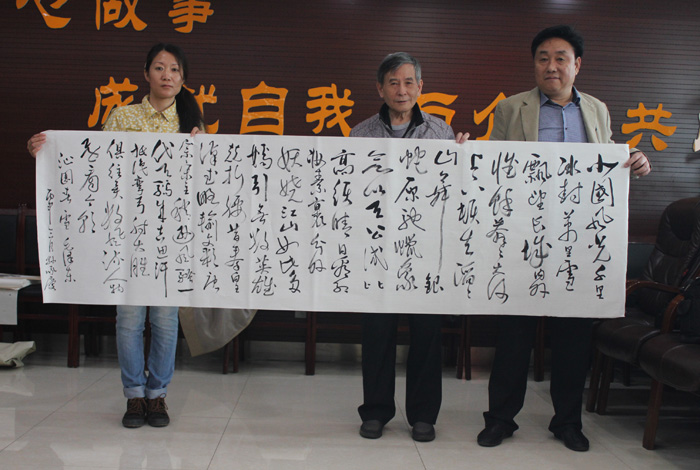 心做事
成就自我
共
北国风光千里
冰封万里雪
飘望长城内外
惟余莽莽大河
上下顿失滔滔
山舞银
蛇原驰蜡象
欲与天公试比
高须晴日看红
妆素裹分外
妖娆江山如此多
娇引无数英雄
竞折腰惜秦皇
汉武略输文采唐
宗宋祖稍逊风骚一
代天骄成吉思汗
只识弯弓射大雕
俱往矣数风流人物
还看今朝
沁园春雪 毛泽东